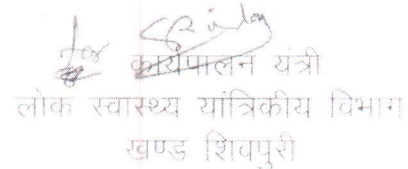 for
कार्यपालन यंत्री
लोक स्वास्थ्य यांत्रिकीय विभाग
खण्ड शिवपुरी